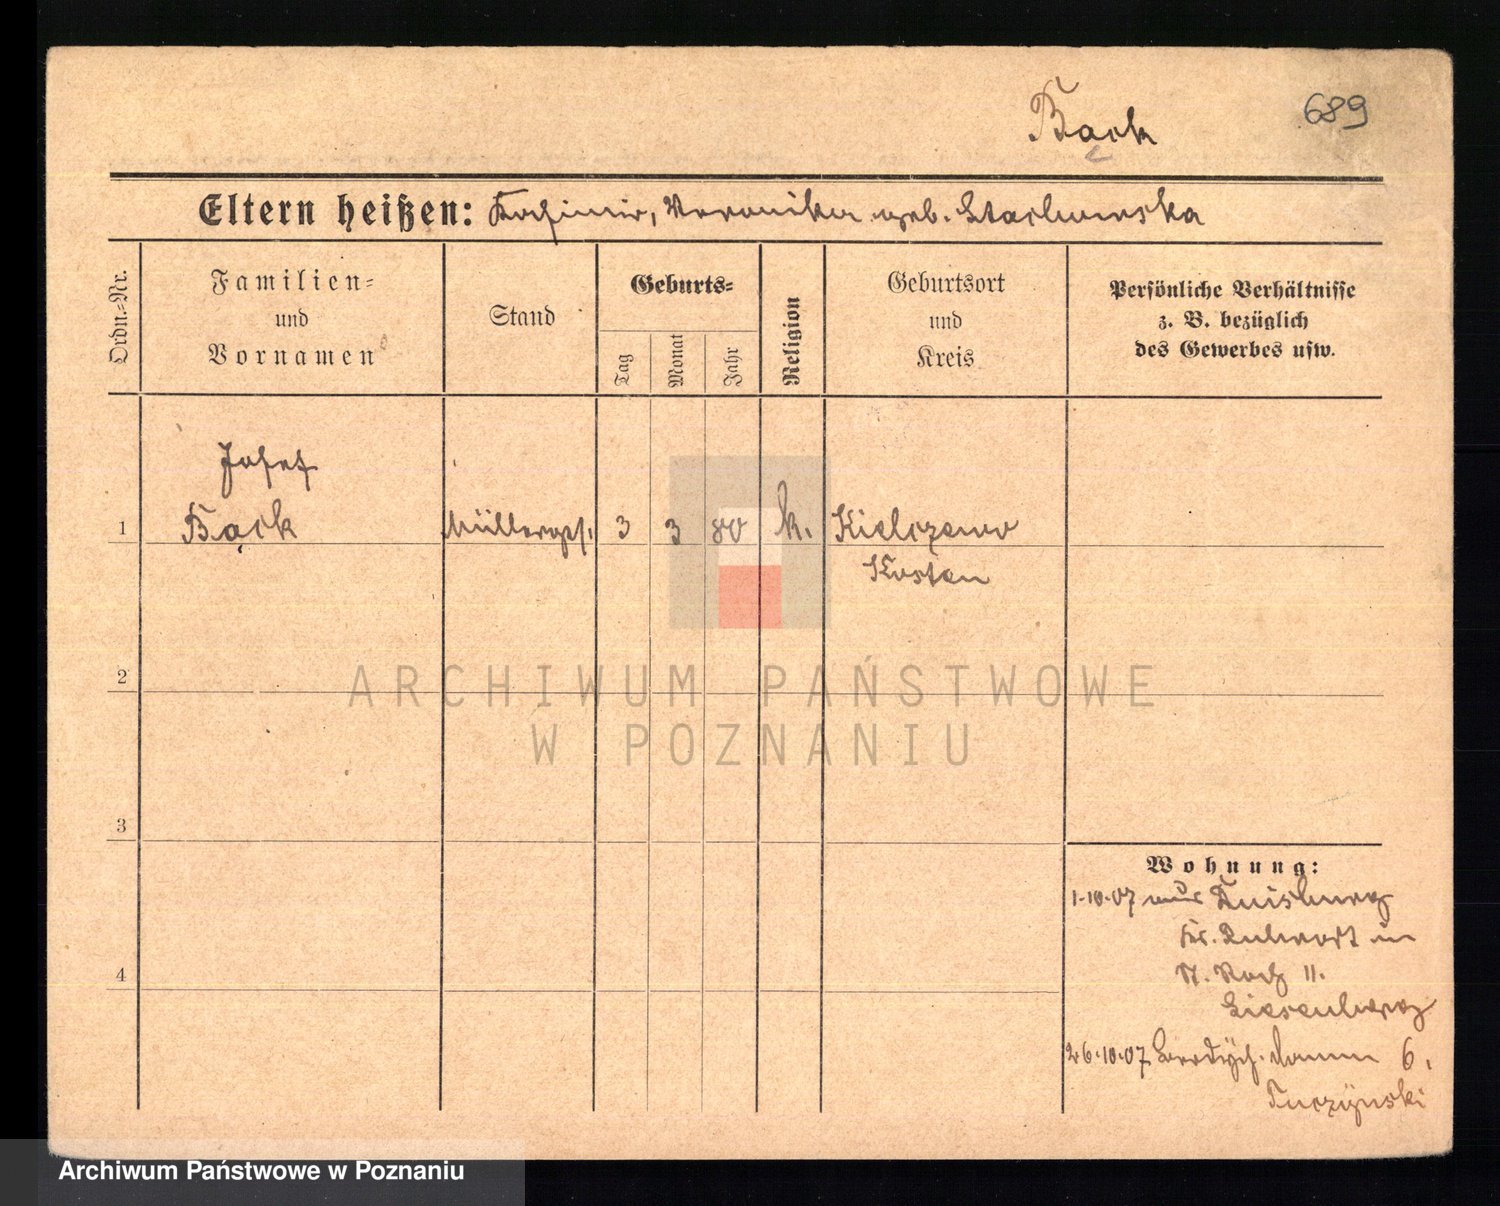 Bąck
689
Eltern heißen: Kasimir, Veronika geb. Stachowska
Ordn.-Nr.
Familien-
und
Vornamen
Stand
Geburts-
Tag
Monat
Jahr
Religion
Geburtsort
und
Kreis
Persönliche Verhältnisse
z. B. bezüglich
des Gewerbes usw.
Josef
1 Bąck Müllerges. 3 3 80 k. Kielczewo
Kosten
2
ARCHIWUM PAŃSTWOWE
W POZNANIU
3
Wohnung:
1.10.07 aus Duisburg
Kr. Ruhrort in
St. Roch 11.
4
26.10.07 damm 6.
Tuczyński
Archiwum Państwowe w Poznaniu